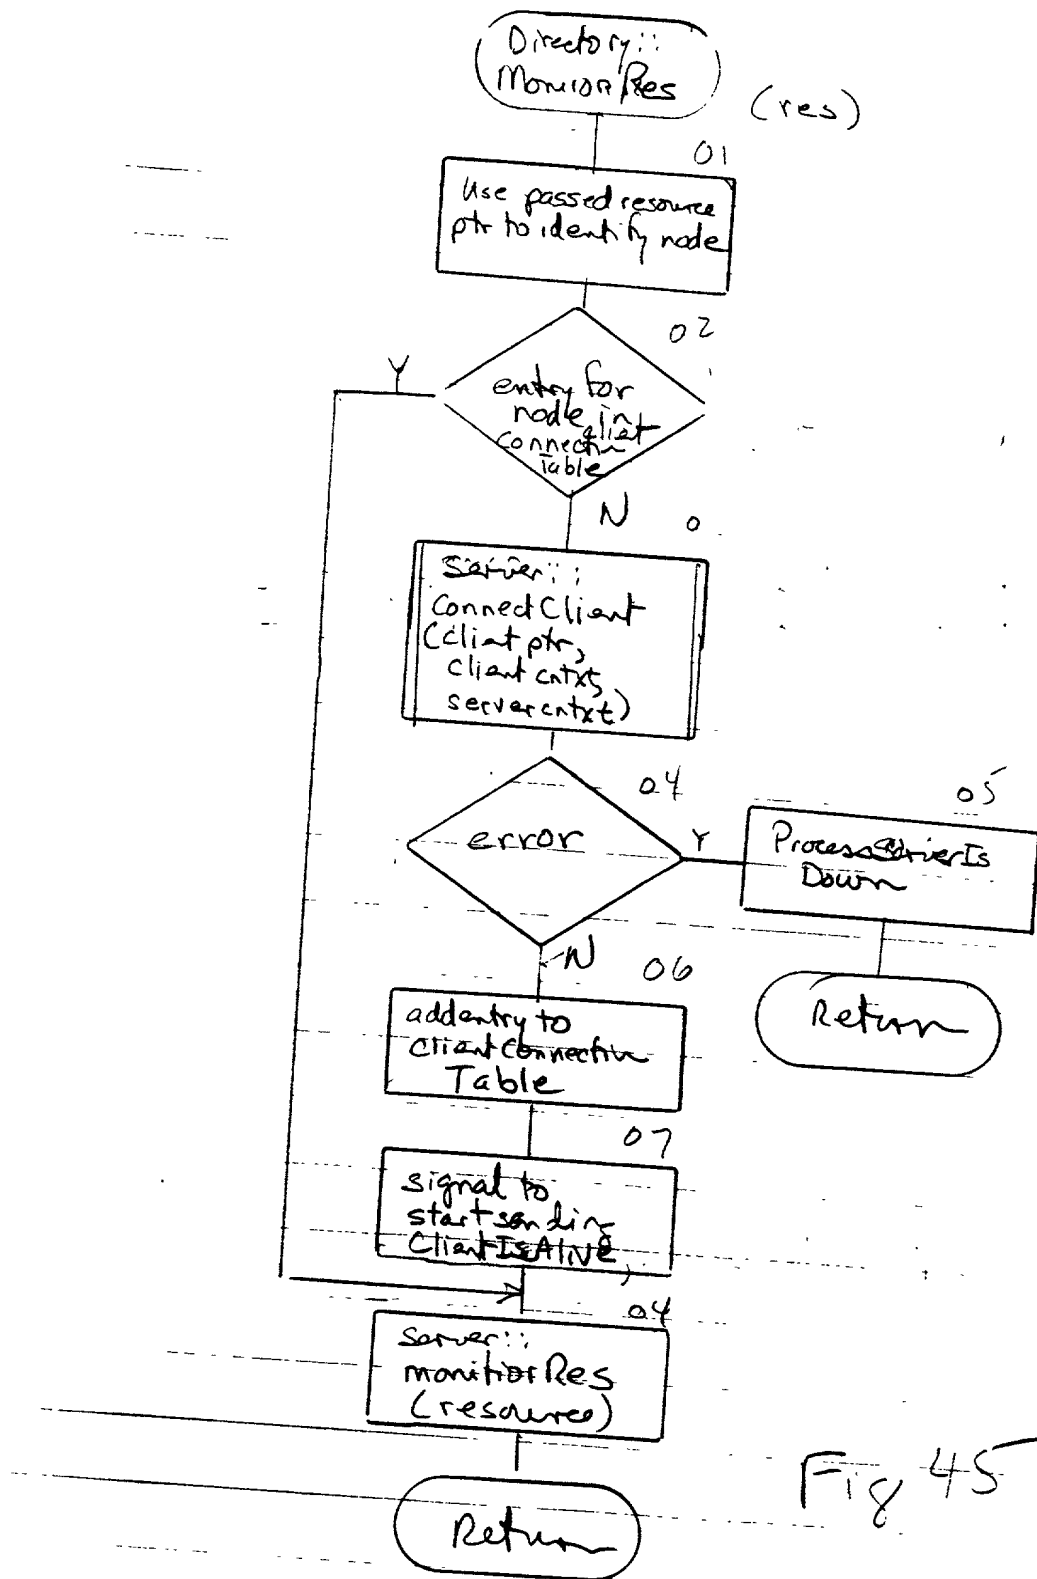 Directory::
MonitorRes
(res)
01
Use passed resource
ptr to identify node
02
Y
entry for
node in
client
connection
Table
N
0
Server::
ConnectClient
(client ptr,
client cntxt,
server cntxt)
04
error
Y
05
ProcessServerIs
Down
Return
N
06
add entry to
ClientConnection
Table
07
signal to
start sending
ClientIsAlive
04
Server::
monitiorRes
(resource)
Return
Fig 45